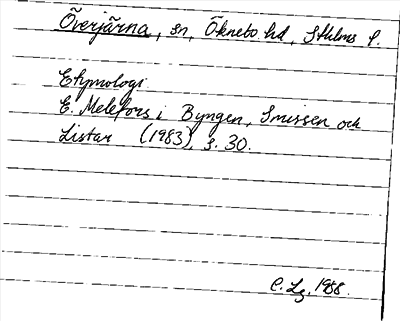 Överjärna, sn, Öknebo hd, Sthlms l.
Etymologi
E. Melefors i Byngen, Snissen och
Listar (1983), s. 30.
C. Lg. 1988.